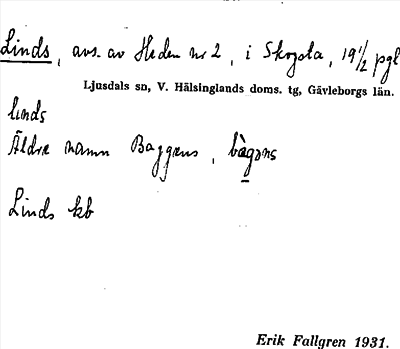 Linds, avs. av Heden nr 2, i Skogsta, 19 1/2 pgl
Ljusdals sn, V. Hälsinglands doms. tg, Gävleborgs län.
linds
Äldre namn Baggens, bàgəns
Linds kb
Erik Fallgren 1931.